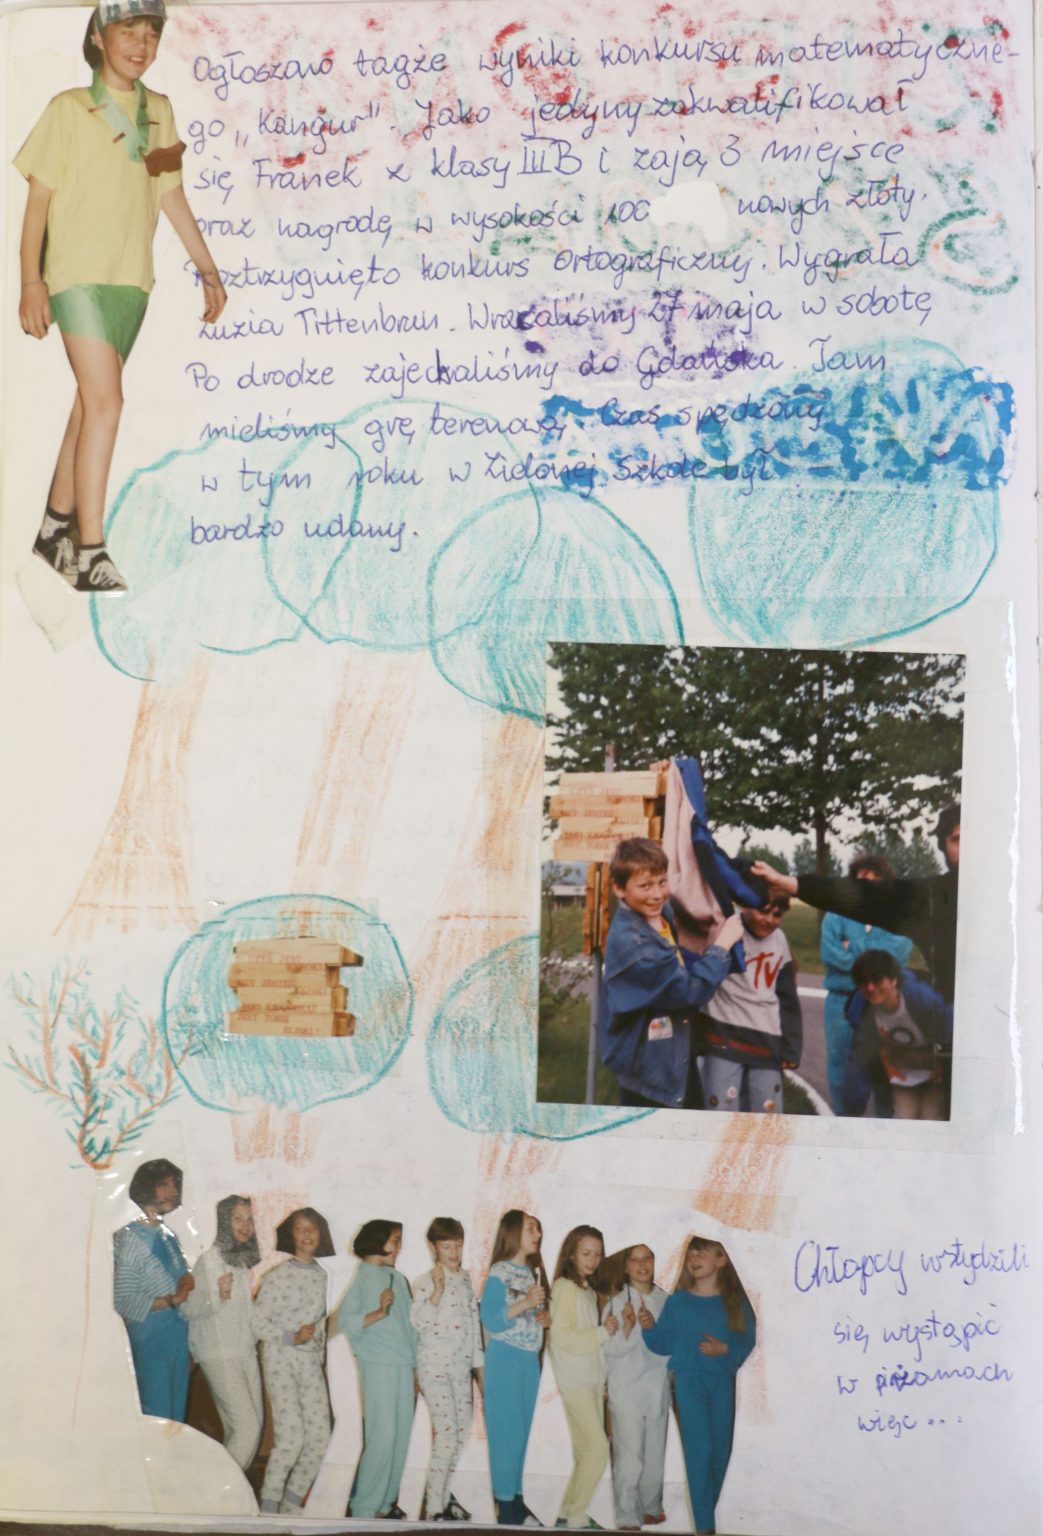 Ogłoszono tagże wyniki konkursu matematyczne-
go „Kangur". Jako jedyny zakwalifikował
się Franek z klasy III B i zają 3 miejsce
oraz nagrodę w wysokości 100 nowych złoty.
Roztrzygnięto konkurs ortograficzny. Wygrała
Zuzia Tittenbrun. Wracaliśmy 27 maja w sobotę
Po drodze zajechaliśmy do Gdańska. Tam
mieliśmy grę terenową. Czas spędzony
w tym roku w Zielonej Szkole był
bardzo udany.
TV
JEST
WYSOKI
JEST TOBIE
BLISKI!
Chłopcy wstydzili
się wystąpić
w piżamach
więc ...